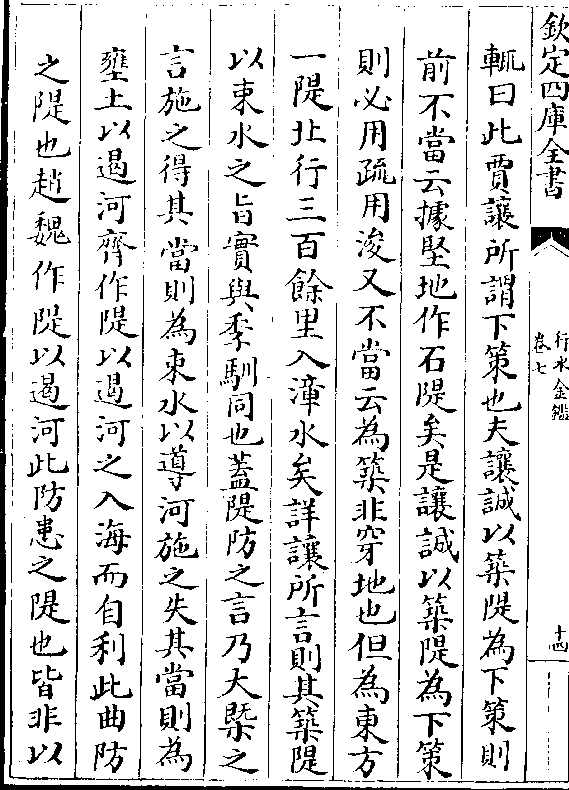 欽定四庫全書
行水金鑑
卷七
十四
輒曰此賈讓所謂下策也夫讓誠以築隄為下策則
前不當云據堅地作石隄矣是讓誠以築隄為下策
則必用疏用浚又不當云為築非穿地也但為東方
一隄北行三百餘里入漳水矣詳讓所言則其築隄
以束水之旨實與季馴同也蓋隄防之言乃大槩之
言施之得其當則為束水以導河施之失其當則為
壅土以遏河齊作隄以遏河之入海而自利此曲防
之隄也趙魏作隄以遏河此防患之隄也皆非以